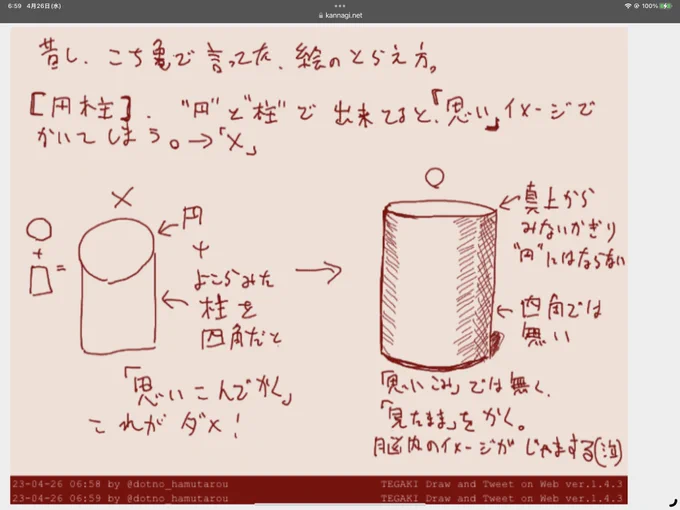 6:59 4月26日(水)
100%
kannagi.net
昔し、こち亀で言ってた、絵のとらえ方。
[円柱]、"円"と"柱"で出来てると、「思い」イメージで
かいてしまう。→「×」
×
○
+
=
円
+
よこからみた
柱を
四角だと
「思いこんでかく」
これがダメ!
○
真上から
みないかぎり
"円"にはならない
四角では
無い
「思いこみ」では無く、
「見たまま」をかく。
脳内のイメージがじゃまする(泣)
23-04-26 06:58 by @dotno_hamutarou TEGAKI Draw and Tweet on Web ver.1.4.3
23-04-26 06:59 by @dotno_hamutarou TEGAKI Draw and Tweet on Web ver.1.4.3